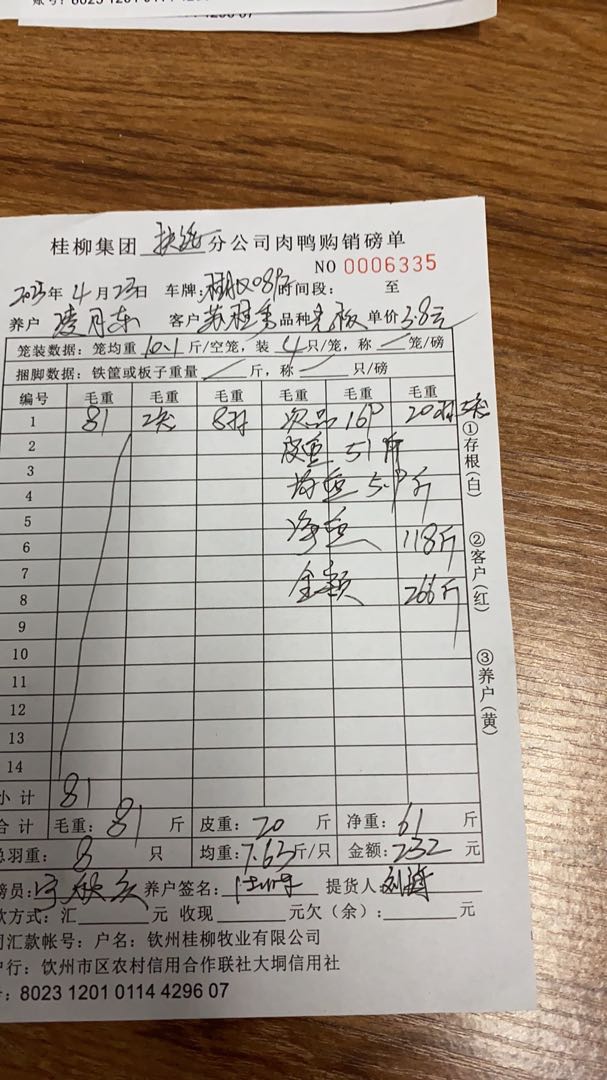 账号: 8023 1201 0114 4296 07
桂柳集团 分公司肉鸭购销磅单
NO 0006335
2023年4月23日 车牌: 时间段: 至
养户 客户 品种 单价3.8元
笼装数据: 笼均重 10.1 斤/空笼, 装 4 只/笼, 称 笼/磅
捆脚数据: 铁筐或板子重量 斤, 称 只/磅
编号 毛重 毛重 毛重 毛重 毛重 毛重
1 81 2 8 次品 16P 20
2 皮重 51斤
3
4 均重 5.9斤
5
6 净重 118斤
7
8 金额 266斤
9
10
11
12
13
14
小计 81
合计 毛重: 81 斤 皮重: 20 斤 净重: 61 斤
总羽重: 8 只 均重: 7.63斤/只 金额: 232 元
磅员: 养户签名: 提货人:
款方式: 汇 元 收现 元欠(余): 元
司汇款帐号: 户名: 钦州桂柳牧业有限公司
户行: 钦州市区农村信用合作联社大垌信用社
号: 8023 1201 0114 4296 07
①存根(白)
②客户(红)
③养户(黄)